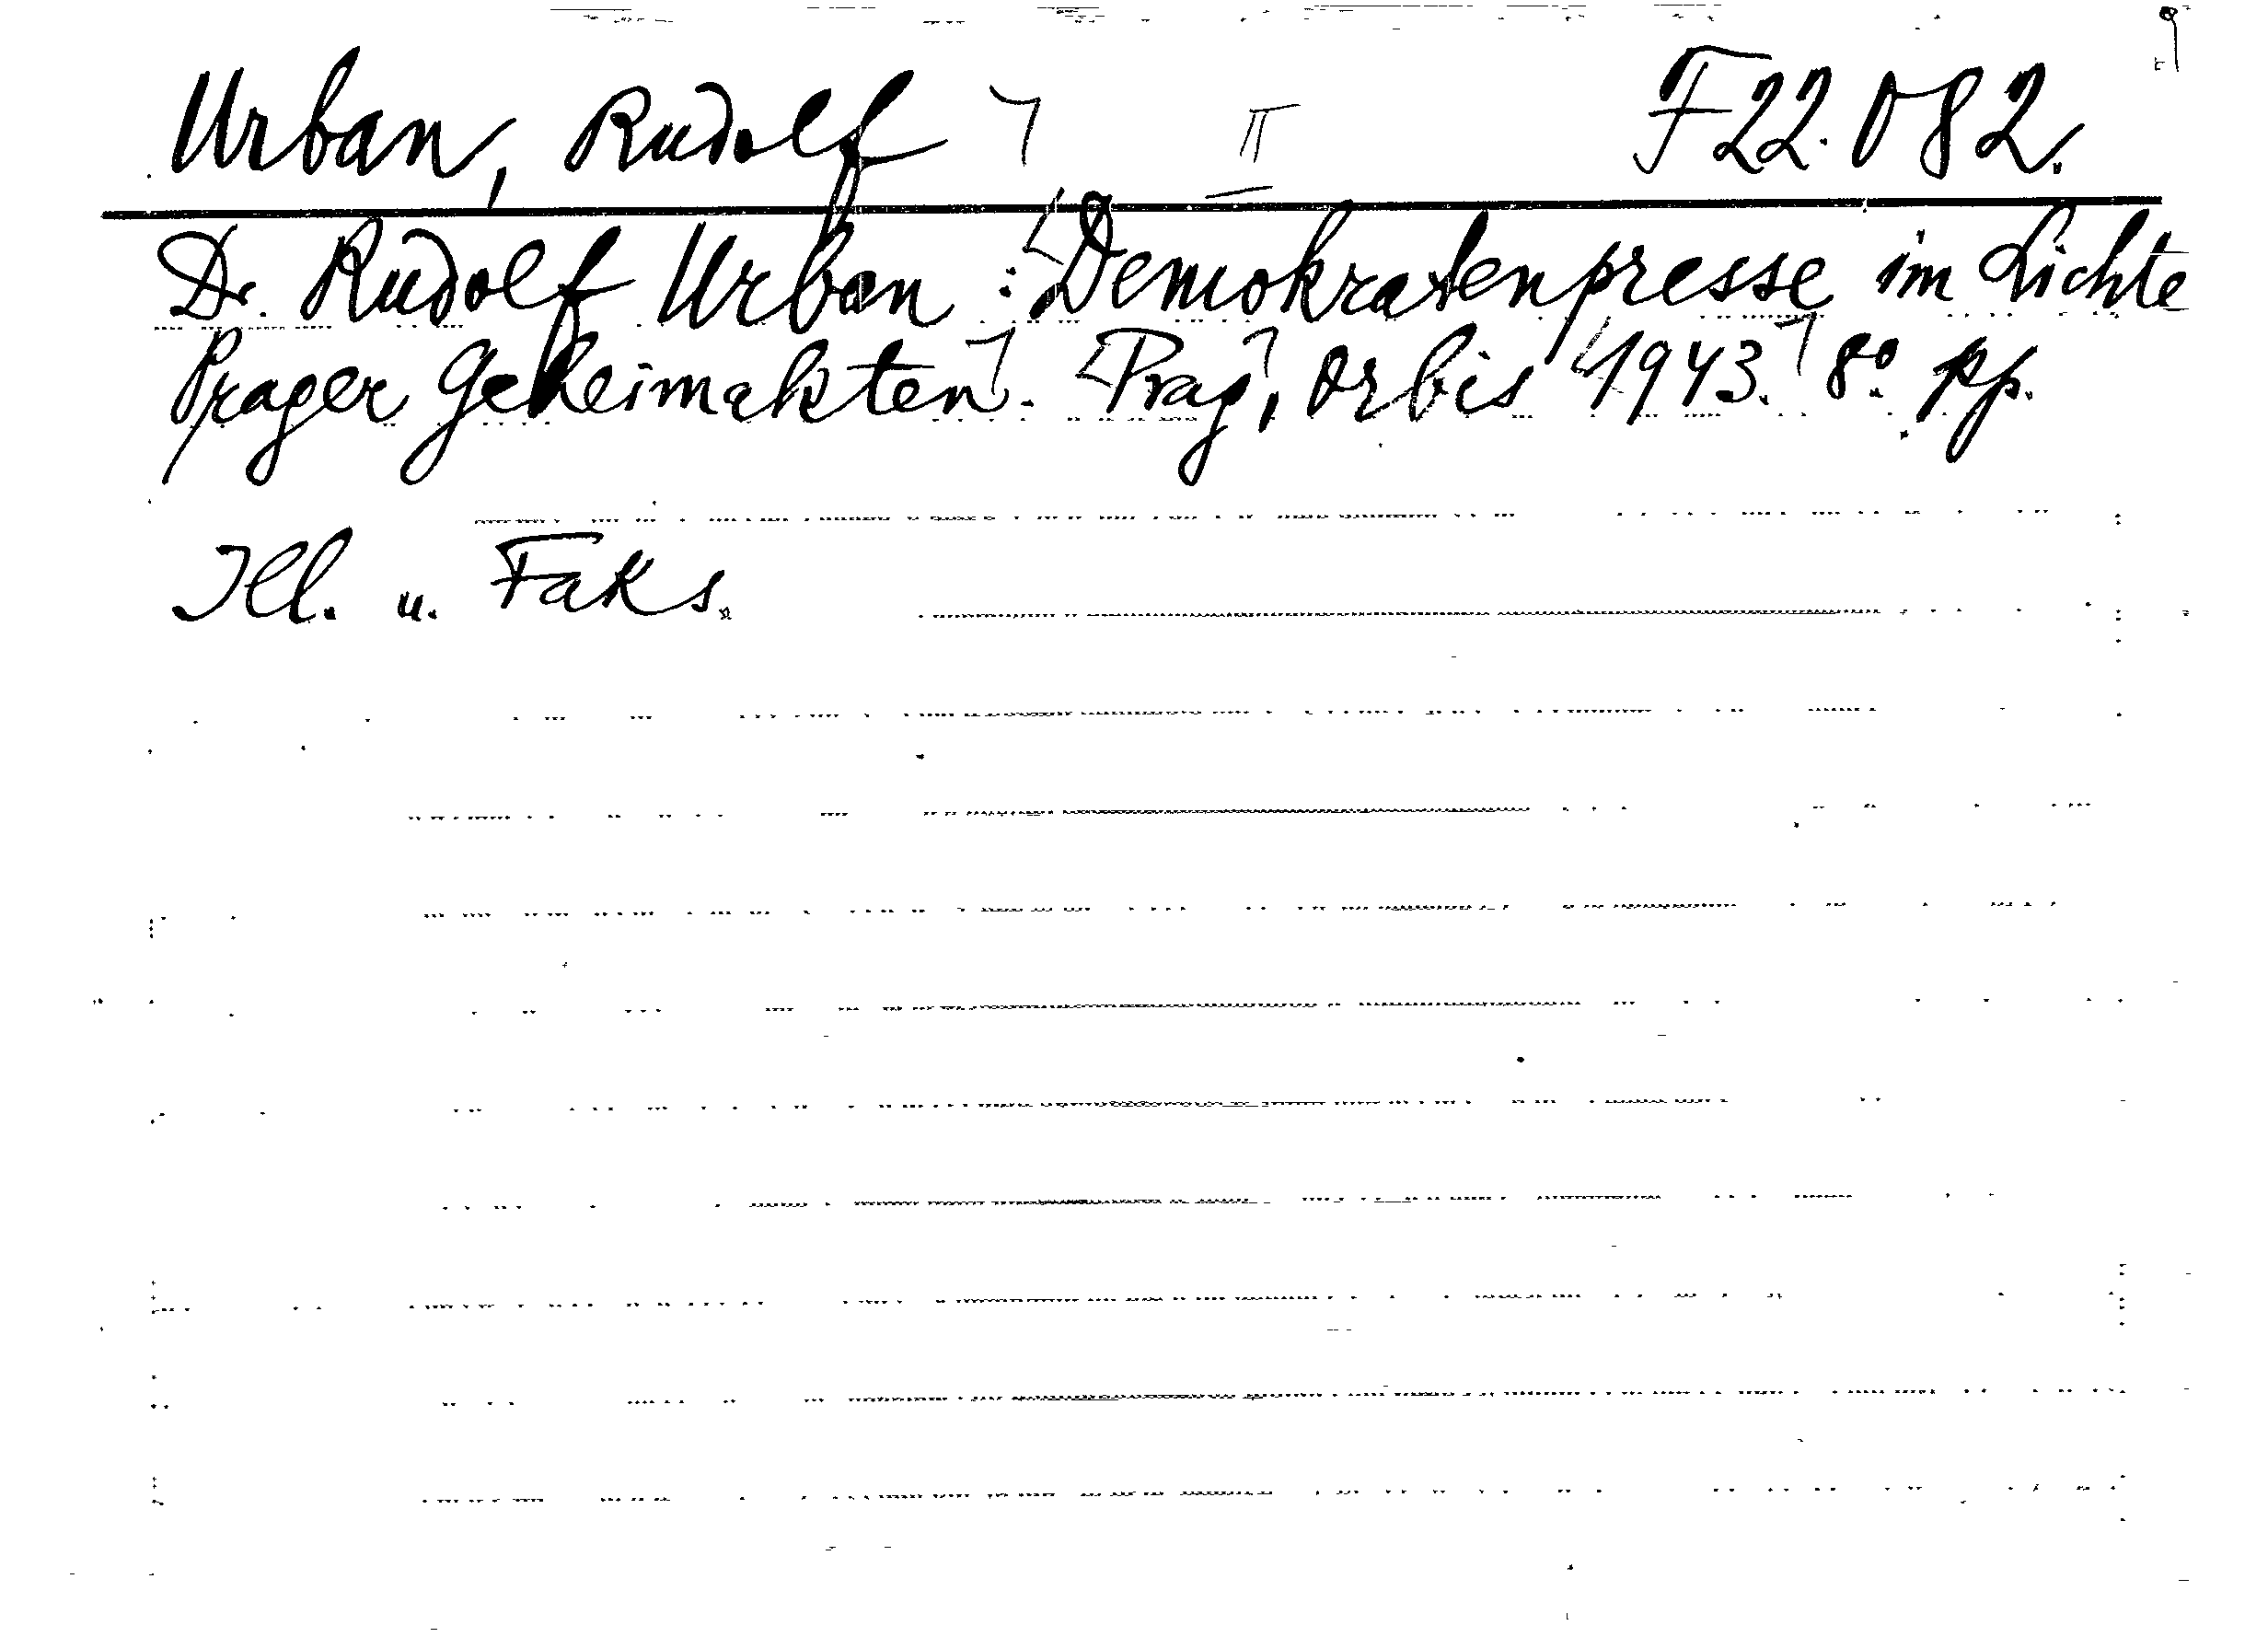 Urban, Rudolf II F22.082.
Dr. Rudolf Urban: Demokratenpresse im Lichte
Prager Geheimakten. Prag, Orbis 1943. 8° pp.
Ill. u. Faks.